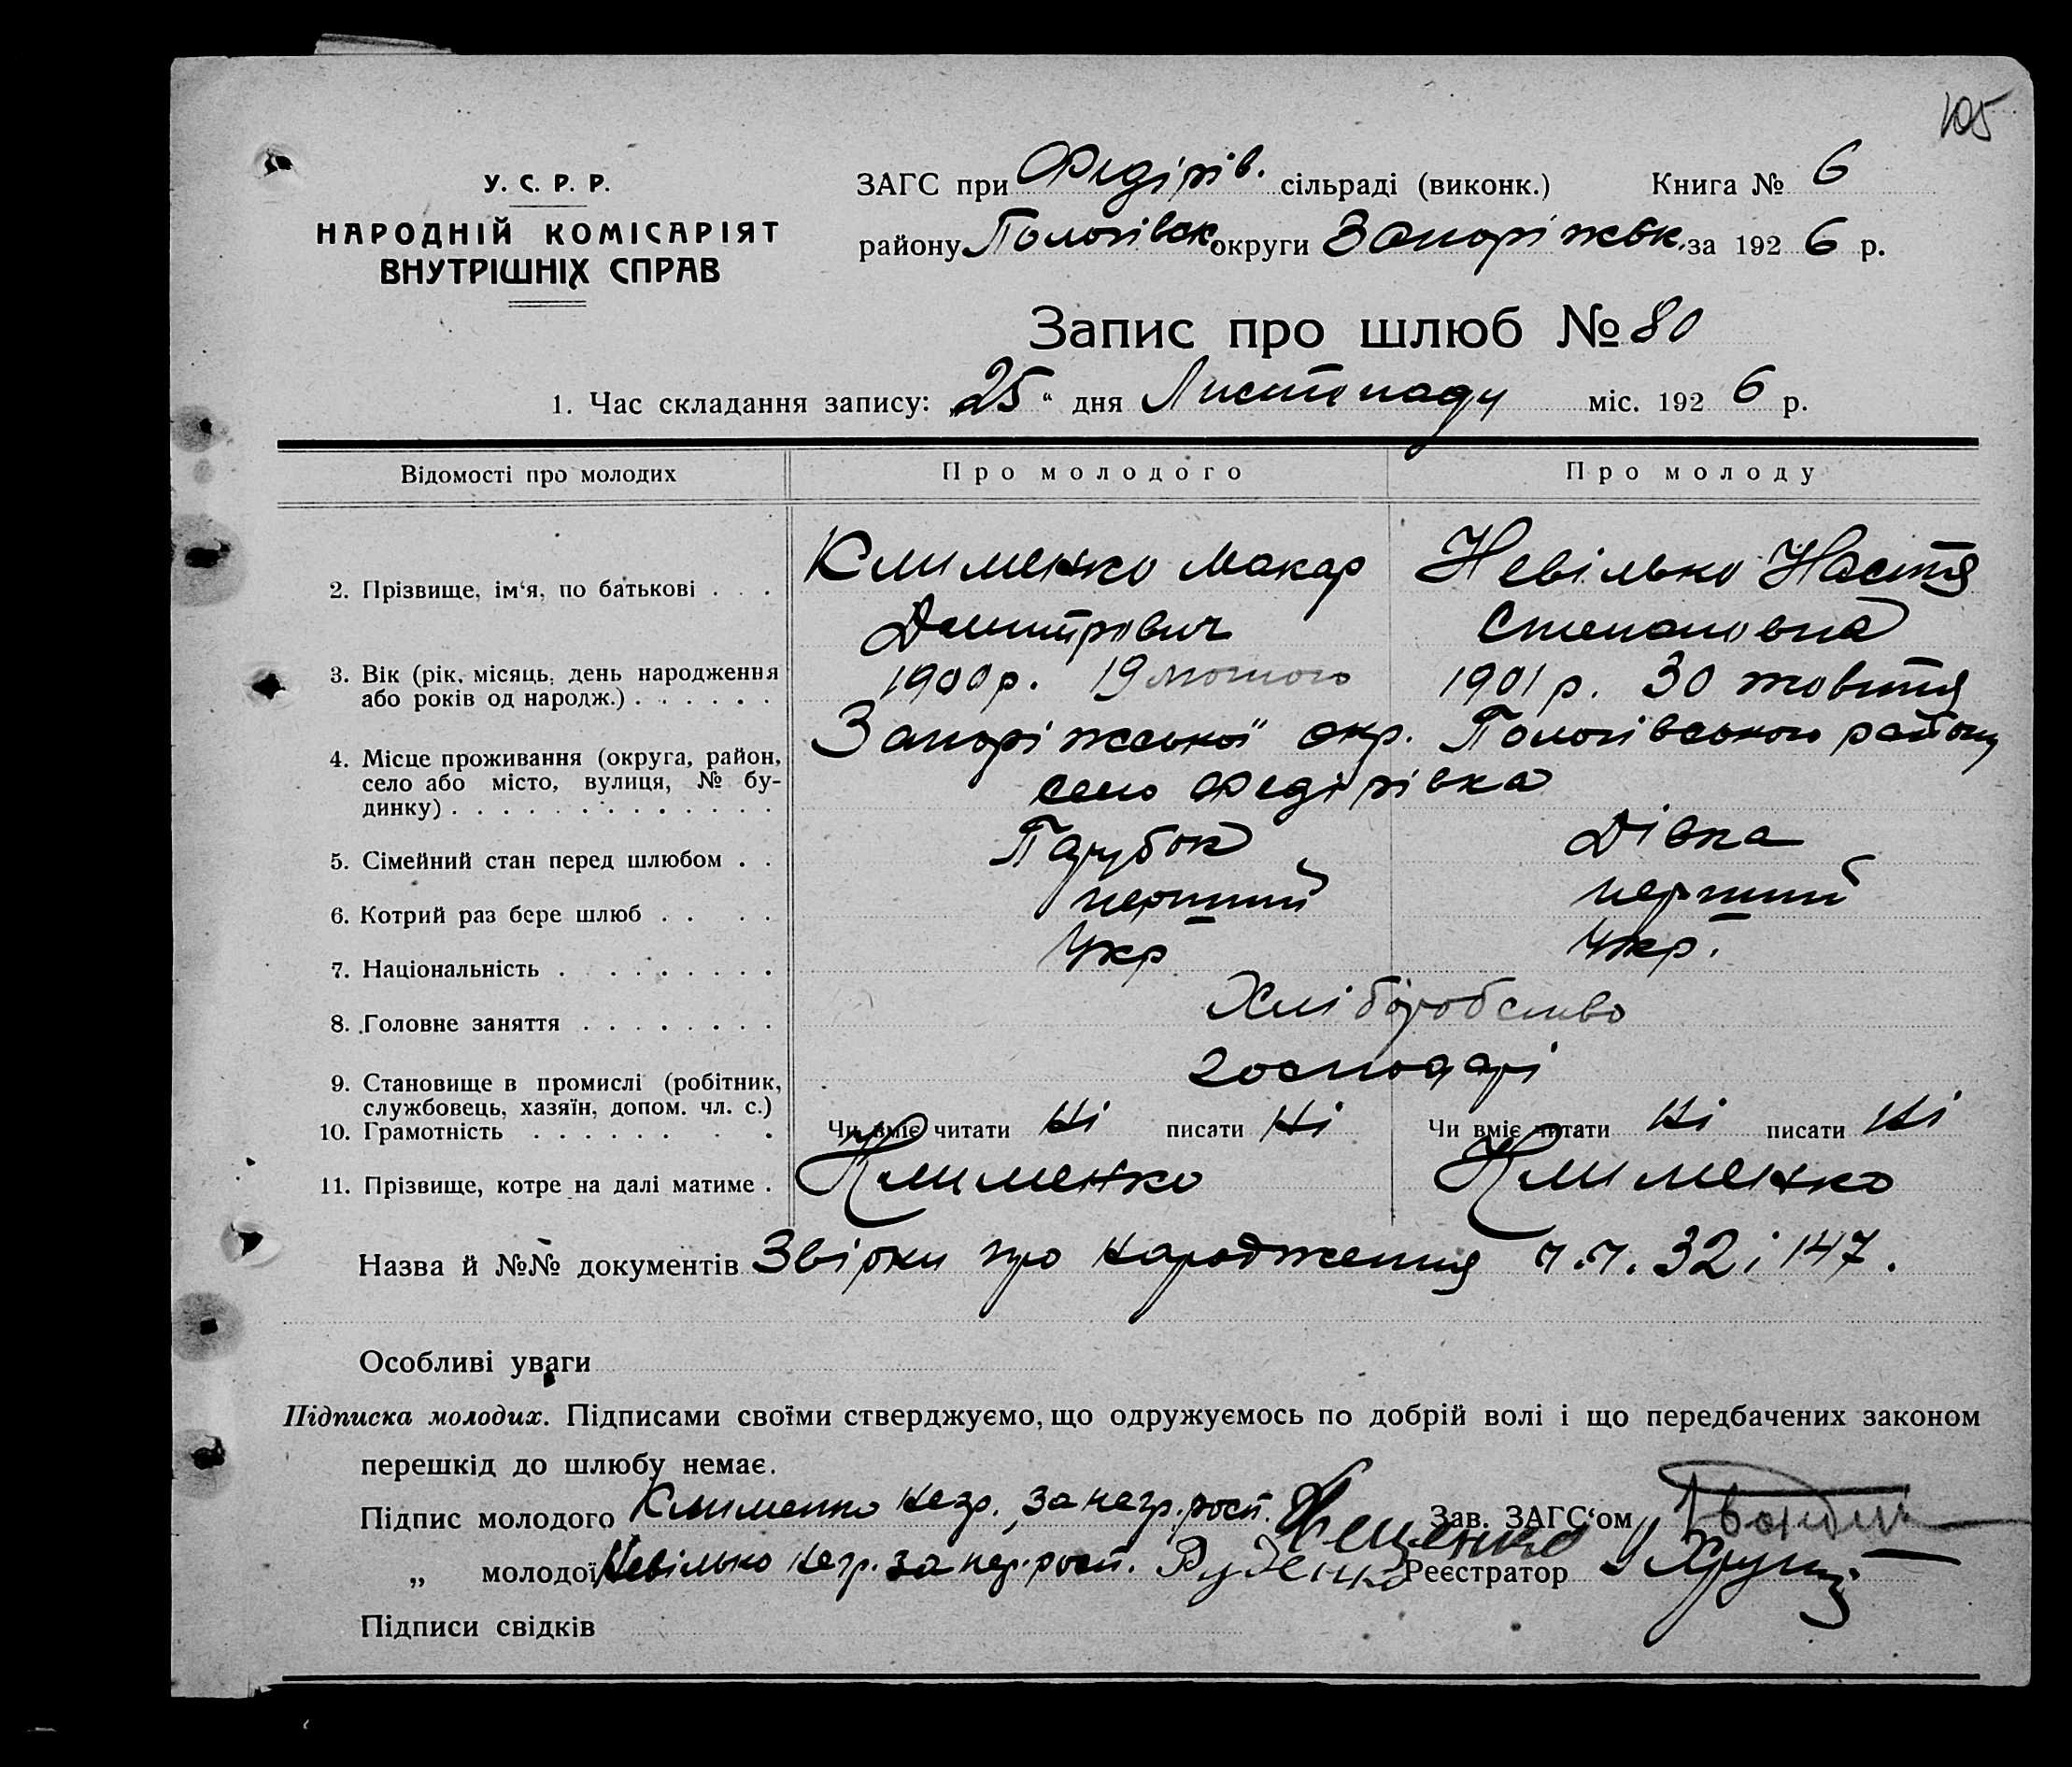 105
У. С. Р. Р.
НАРОДНІЙ КОМІСАРІЯТ
ВНУТРІШНІХ СПРАВ
ЗАГС при Федірів. сільраді (виконк.) Книга № 6
району Пологівск округи Запоріжськ. за 1926 р.
Запис про шлюб № 80
1. Час складання запису: „25“ дня Листопаду міс. 1926 р.
Відомості про молодих Про молодого Про молоду
2. Прізвище, ім‘я, по батькові . . . Клименко Макар Невілько Настя
Дмитрович Степановна
3. Вік (рік, місяць, день народження
або років од народж.) . . . . . . 1900 р. 19 лютого 1901 р. 30 жовтня
4. Місце проживання (округа, район,
село або місто, вулиця, № бу-
динку) . . . . . . . . . . . . . Запоріжської окр. Пологівського району
село Федірівка
5. Сімейний стан перед шлюбом . . Парубок Дівка
6. Котрий раз бере шлюб . . . . перший перший
7. Національність . . . . . . . . . Укр Укр.
8. Головне заняття . . . . . . . . Хліборобство
9. Становище в промислі (робітник,
службовець, хазяїн, допом. чл. с.) господарі
10. Грамотність . . . . . . . . Чи вміє читати Ні писати Ні Чи вміє читати Ні писати Ні
11. Прізвище, котре на далі матиме . Клименко Клименко
Назва й №№ документів Звірки про народження ч.ч. 32 і 147.
Особливі уваги
Підписка молодих. Підписами своїми стверджуємо, що одружуємось по добрій волі і що передбачених законом
перешкід до шлюбу немає.
Підпис молодого Клименко негр., за негр. росп. Зав. ЗАГС‘ом
„ молодої Невілько негр. за нег. росп. Руденко Реєстратор
Підписи свідків